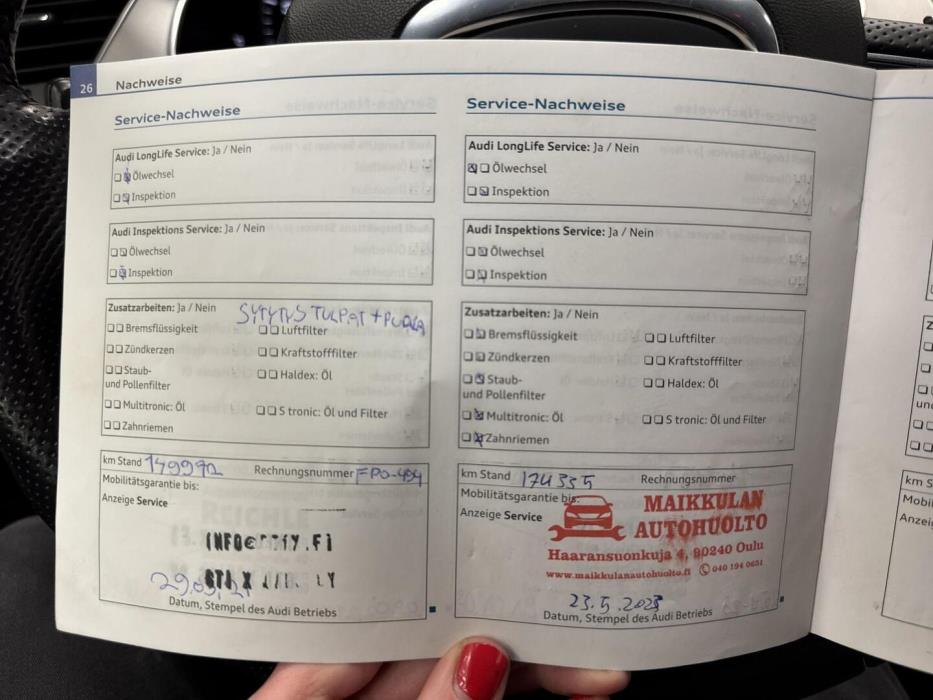 26 Nachweise
Service-Nachweise
Audi LongLife Service: Ja / Nein
Ölwechsel
Inspektion
Audi Inspektions Service: Ja / Nein
Ölwechsel
Inspektion
Zusatzarbeiten: Ja / Nein
SYTYTYS TULPAT +
Bremsflüssigkeit
Luftfilter
Zündkerzen
Kraftstofffilter
Staub-
und Pollenfilter
Haldex: Öl
Multitronic: Öl
S tronic: Öl und Filter
Zahnriemen
km Stand 149992 Rechnungsnummer FPO-494
Mobilitätsgarantie bis:
Anzeige Service
Datum, Stempel des Audi Betriebs
Service-Nachweise
Audi LongLife Service: Ja / Nein
Ölwechsel
Inspektion
Audi Inspektions Service: Ja / Nein
Ölwechsel
Inspektion
Zusatzarbeiten: Ja / Nein
Bremsflüssigkeit
Luftfilter
Zündkerzen
Kraftstofffilter
Staub-
und Pollenfilter
Haldex: Öl
Multitronic: Öl
S tronic: Öl und Filter
Zahnriemen
km Stand 174335 Rechnungsnummer
Mobilitätsgarantie bis:
Anzeige Service
MAIKKULAN
AUTOHUOLTO
Haaransuonkuja 4, 90240 Oulu
www.maikkulanautohuolto.fi 040 194 0651
23.5.2023
Datum, Stempel des Audi Betriebs
km S
Mobi
Anzei